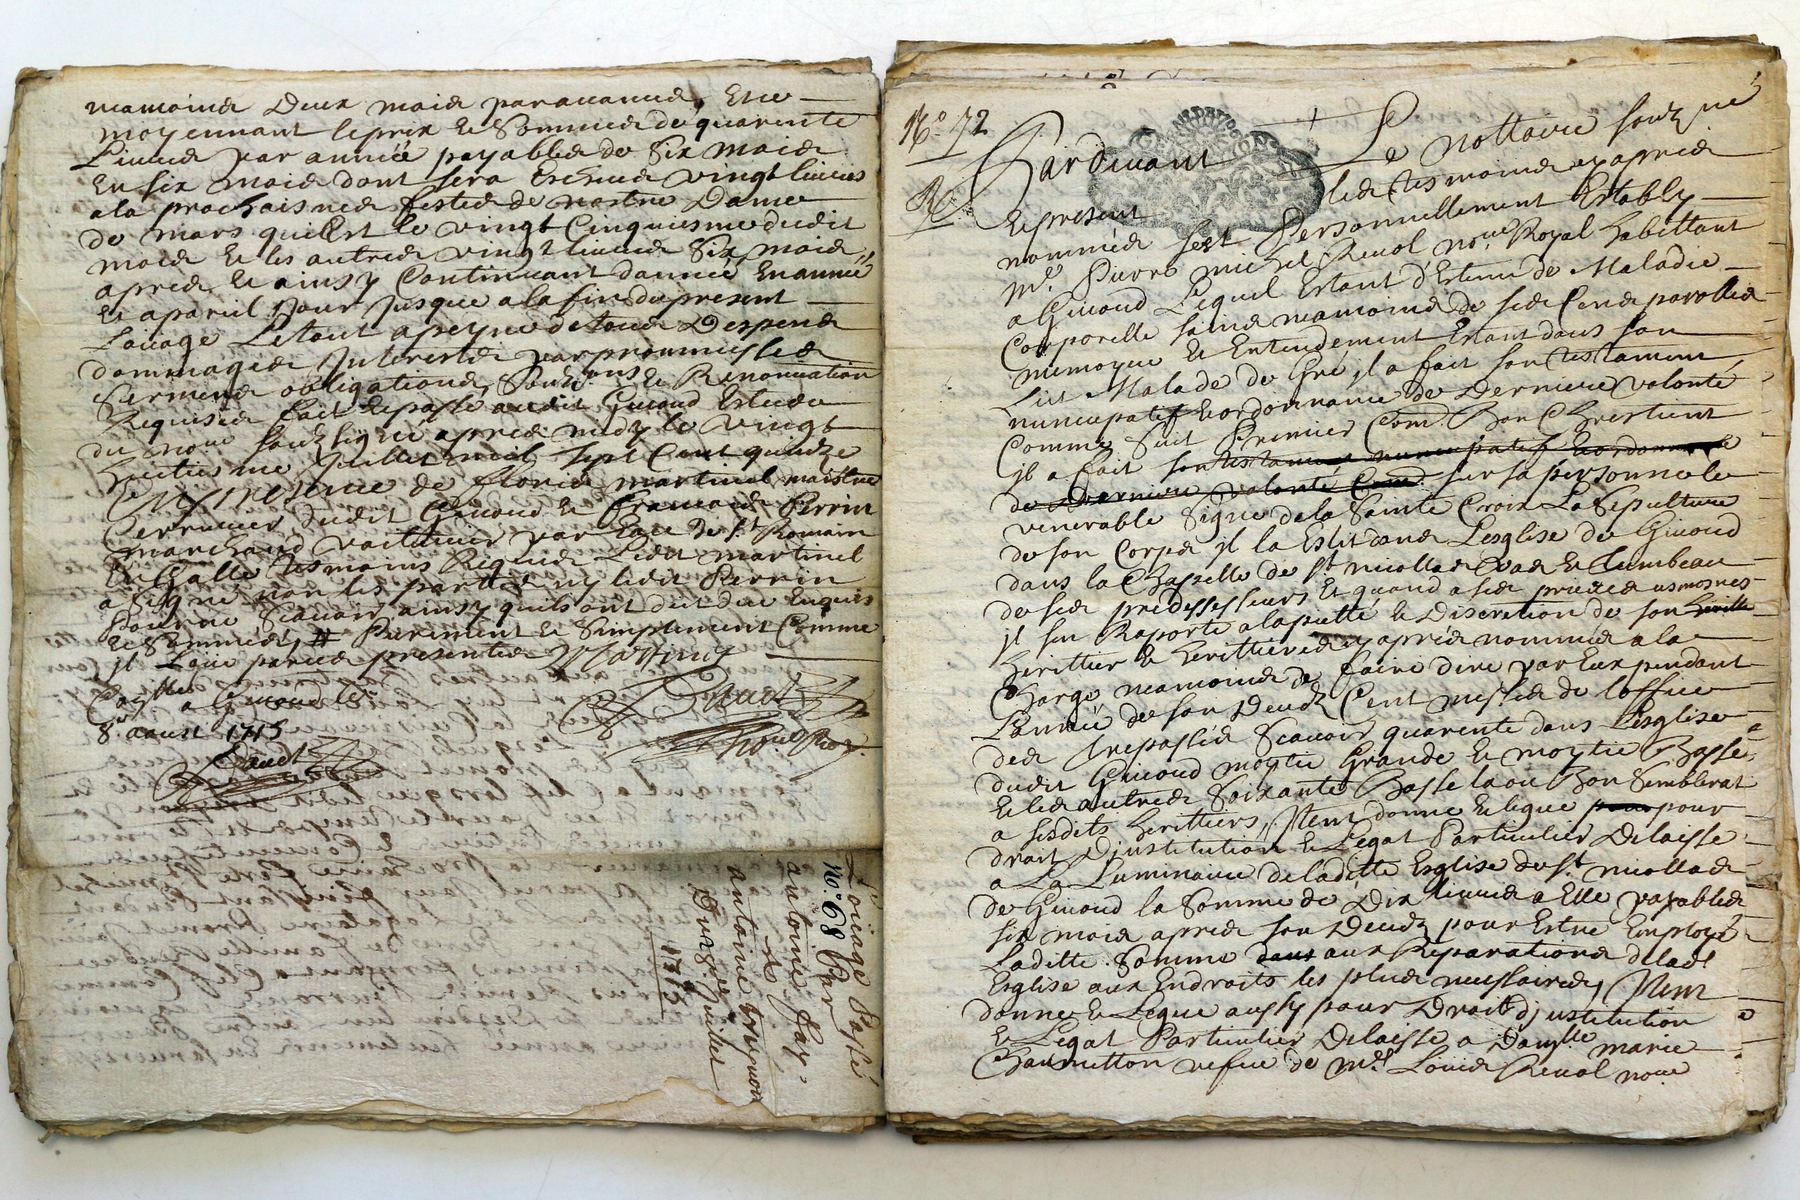 mamoinds deux mois paravance, et ce
moyennant le prix et sommes de quarente
Livres par année payables de six mois
En six mois dont sera vingt livres
a la prochaisne feste de nostre Dame
de mars quil Est le vingt Cinquiesme dudit
mois Et les autres vingt livres six mois
apres Et ainsy Continuant dannée En année
Et a pareil Jour Jusque a la fin du present
Louage Letout a peyne de tous Despens
dommages Interests par promesses
serments obligations, Soub.ons Et Renonciation
Requises fait Et passé audit Givord Estude
du no.re soubsigné apres midy le vingt
huitiesme Juillet mil sept Cent quinze
En presence de martinel maistre
serrurier dudit Givord Et francois Perrin
marchand voiturier par Eau de S.t Romain
En Galle tesmoins Requis Ledit martinel
a signé non les parties ny ledit Perrin
pour ne scavoir ainsy quils ont dit de ce Enquis
Et sommés, # Purement Et Simplement Comme
il Lgue par ces presentes Martiney
a Givord le
8 aoust 1715
No. 68
Louage Passé
Par
antoine fay
a
antoine
Du 28.e juillet
1715
N.o 72
Pardevant Le nottaire soubz né
Et present les tesmoins cy apres
nommés fest Personnellement Estably
M.e Pierre michel Revol no.re Royal habittant
a Givord Lequel Estant d'Estenu de Maladie
Corporelle sainds neamoins de ses Cens parolles
memoyre Et Entendement Estant dans son
Lit Malade de Gré, il a fait son testament
nuncupatif Et ordonnance de Derniere volonté
Comme Suit Premier Com. Bon Chrestient
il a fait son testament nuncupatif Et ordonnance
de derniere volonté Com. sur sa personne le
venerable Signe de la Sainte Croix La sepulture
de son Corps il la Eslit dans Lesglise de Givord
dans la Chapelle de S.t nicollas Vas Et Tumbeau
de ses predessesseurs Et quand a ses prieres
il sen Raporte a la piette Et Discretion de son
heritier Et herittieres cy apres nommés a la
Charge neamoins de faire dire par Eux pendant
Lannée de son Decedz Cent messes de l'office
des Trepassés Scavoir quarente dans Lesglise
dudit Givord moytié Grande Et moytié Basse,
Et les autres Soixante Basse la ou Bon Semblerat
a sesdits herittiers, Item donne Et legue pour
droit D'institution Et Legat Particulier Delaisse
a La Luminaire de ladite Esglise de S.t nicollas
de Givord la Somme de Dix livres a Elle payables
six mois apres son Decedz pour Estre Employé
Laditte Somme dans aux Reparations de lad.
Esglise aux Endroits les plus nessaires, Item
donne Et Legue aussy pour Droit d'institution
Et Legat Particulier Delaisse a Dam.lle marie
Chaumetton vefve de M.e Louis Revol no.re